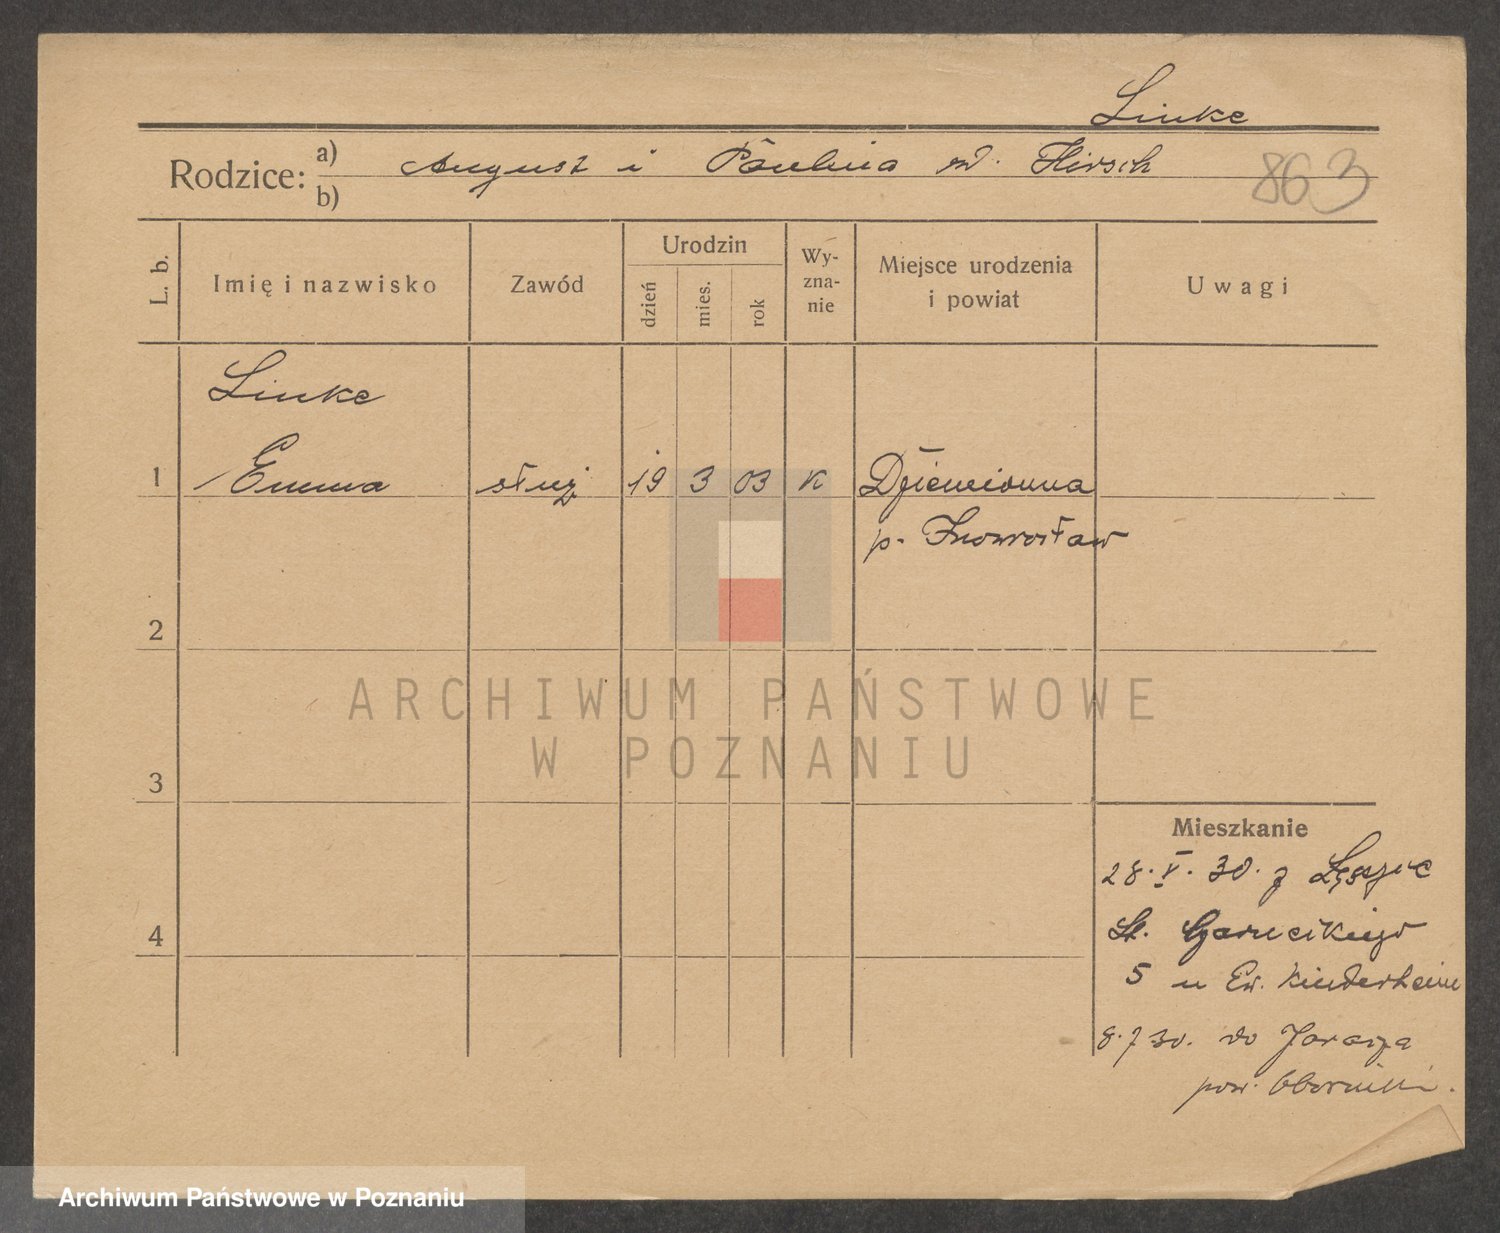 Linke
Rodzice: a) August i Paulina ur. Hirsch
b)
863
L. b. Imię i nazwisko Zawód Urodzin dzień mies. rok Wy-zna-nie Miejsce urodzenia i powiat Uwagi
Linke
1 Emma służ 19 3 03 K Dziewionna
p. Inowrocław
2
ARCHIWUM PAŃSTWOWE
W POZNANIU
3
Mieszkanie
28. V. 30. z
4
5 u Ew. Kinderheim
8.7 30. do
pow. Oborniki.
Archiwum Państwowe w Poznaniu